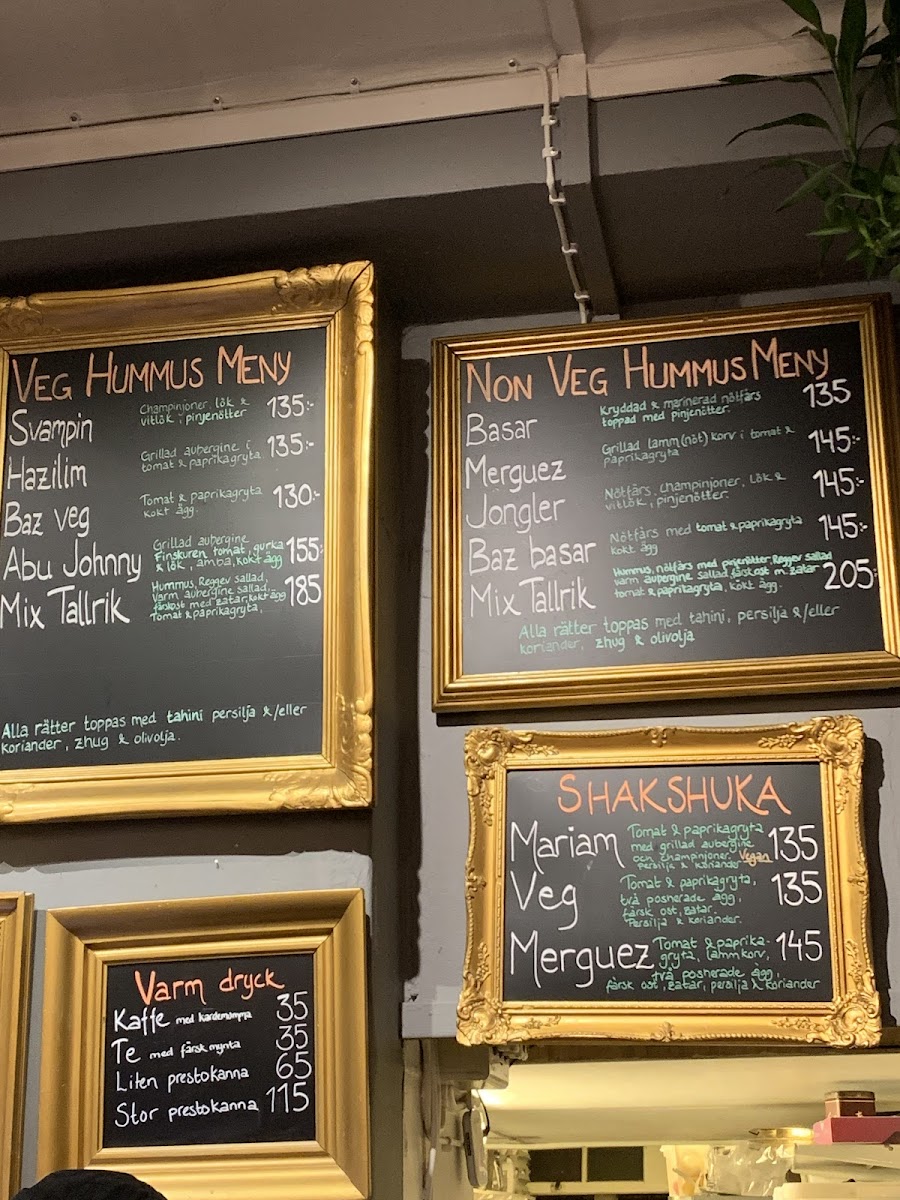 VEG HUMMUS MENY
Svampin Champinjoner, lök & 135:-
vitlök, pinjenötter
Hazilim Grillad aubergine i 135:-
tomat & paprikagryta.
Baz veg Tomat & paprikagryta 130:-
kokt ägg.
Abu Johnny Grillad aubergine 155:-
Finskuren tomat, gurka
& lök, amba, kokt ägg
Mix Tallrik Hummus, Reggev sallad, 185
varm aubergine sallad,
färskost med zatar, kokt ägg
Tomat & paprikagryta.
Alla rätter toppas med tahini persilja &/eller
koriander, zhug & olivolja.
NON VEG HUMMUS MENY
Basar Kryddad & marinerad nötfärs 135
toppad med pinjenötter.
Merguez Grillad lamm(nöt) korv i tomat & 145:-
paprikagryta
Jongler Nötfärs, champinjoner, lök & 145:-
vitlök, pinjenötter.
Baz basar Nötfärs med tomat & paprikagryta 145:-
kokt ägg
Mix Tallrik Hummus, nötfärs med pinjenötter, Reggev sallad 205:-
varm aubergine sallad, färskost m. zatar
tomat & paprikagryta, kokt ägg.
Alla rätter toppas med tahini, persilja &/eller
koriander, zhug & olivolja
SHAKSHUKA
Mariam Tomat & paprikagryta 135
med grillad aubergine
och champinjoner. Vegan
Persilja & koriander
Veg Tomat & paprikagryta, 135
två posherade ägg,
färsk ost, zatar.
Persilja & koriander.
Merguez Tomat & paprika- 145
gryta, lammkorv,
två posherade ägg,
färsk ost, zatar, persilja & koriander
Varm dryck
Kaffe med kardemumma 35
Te med färsk mynta 35
Liten prestokanna 65
Stor prestokanna 115